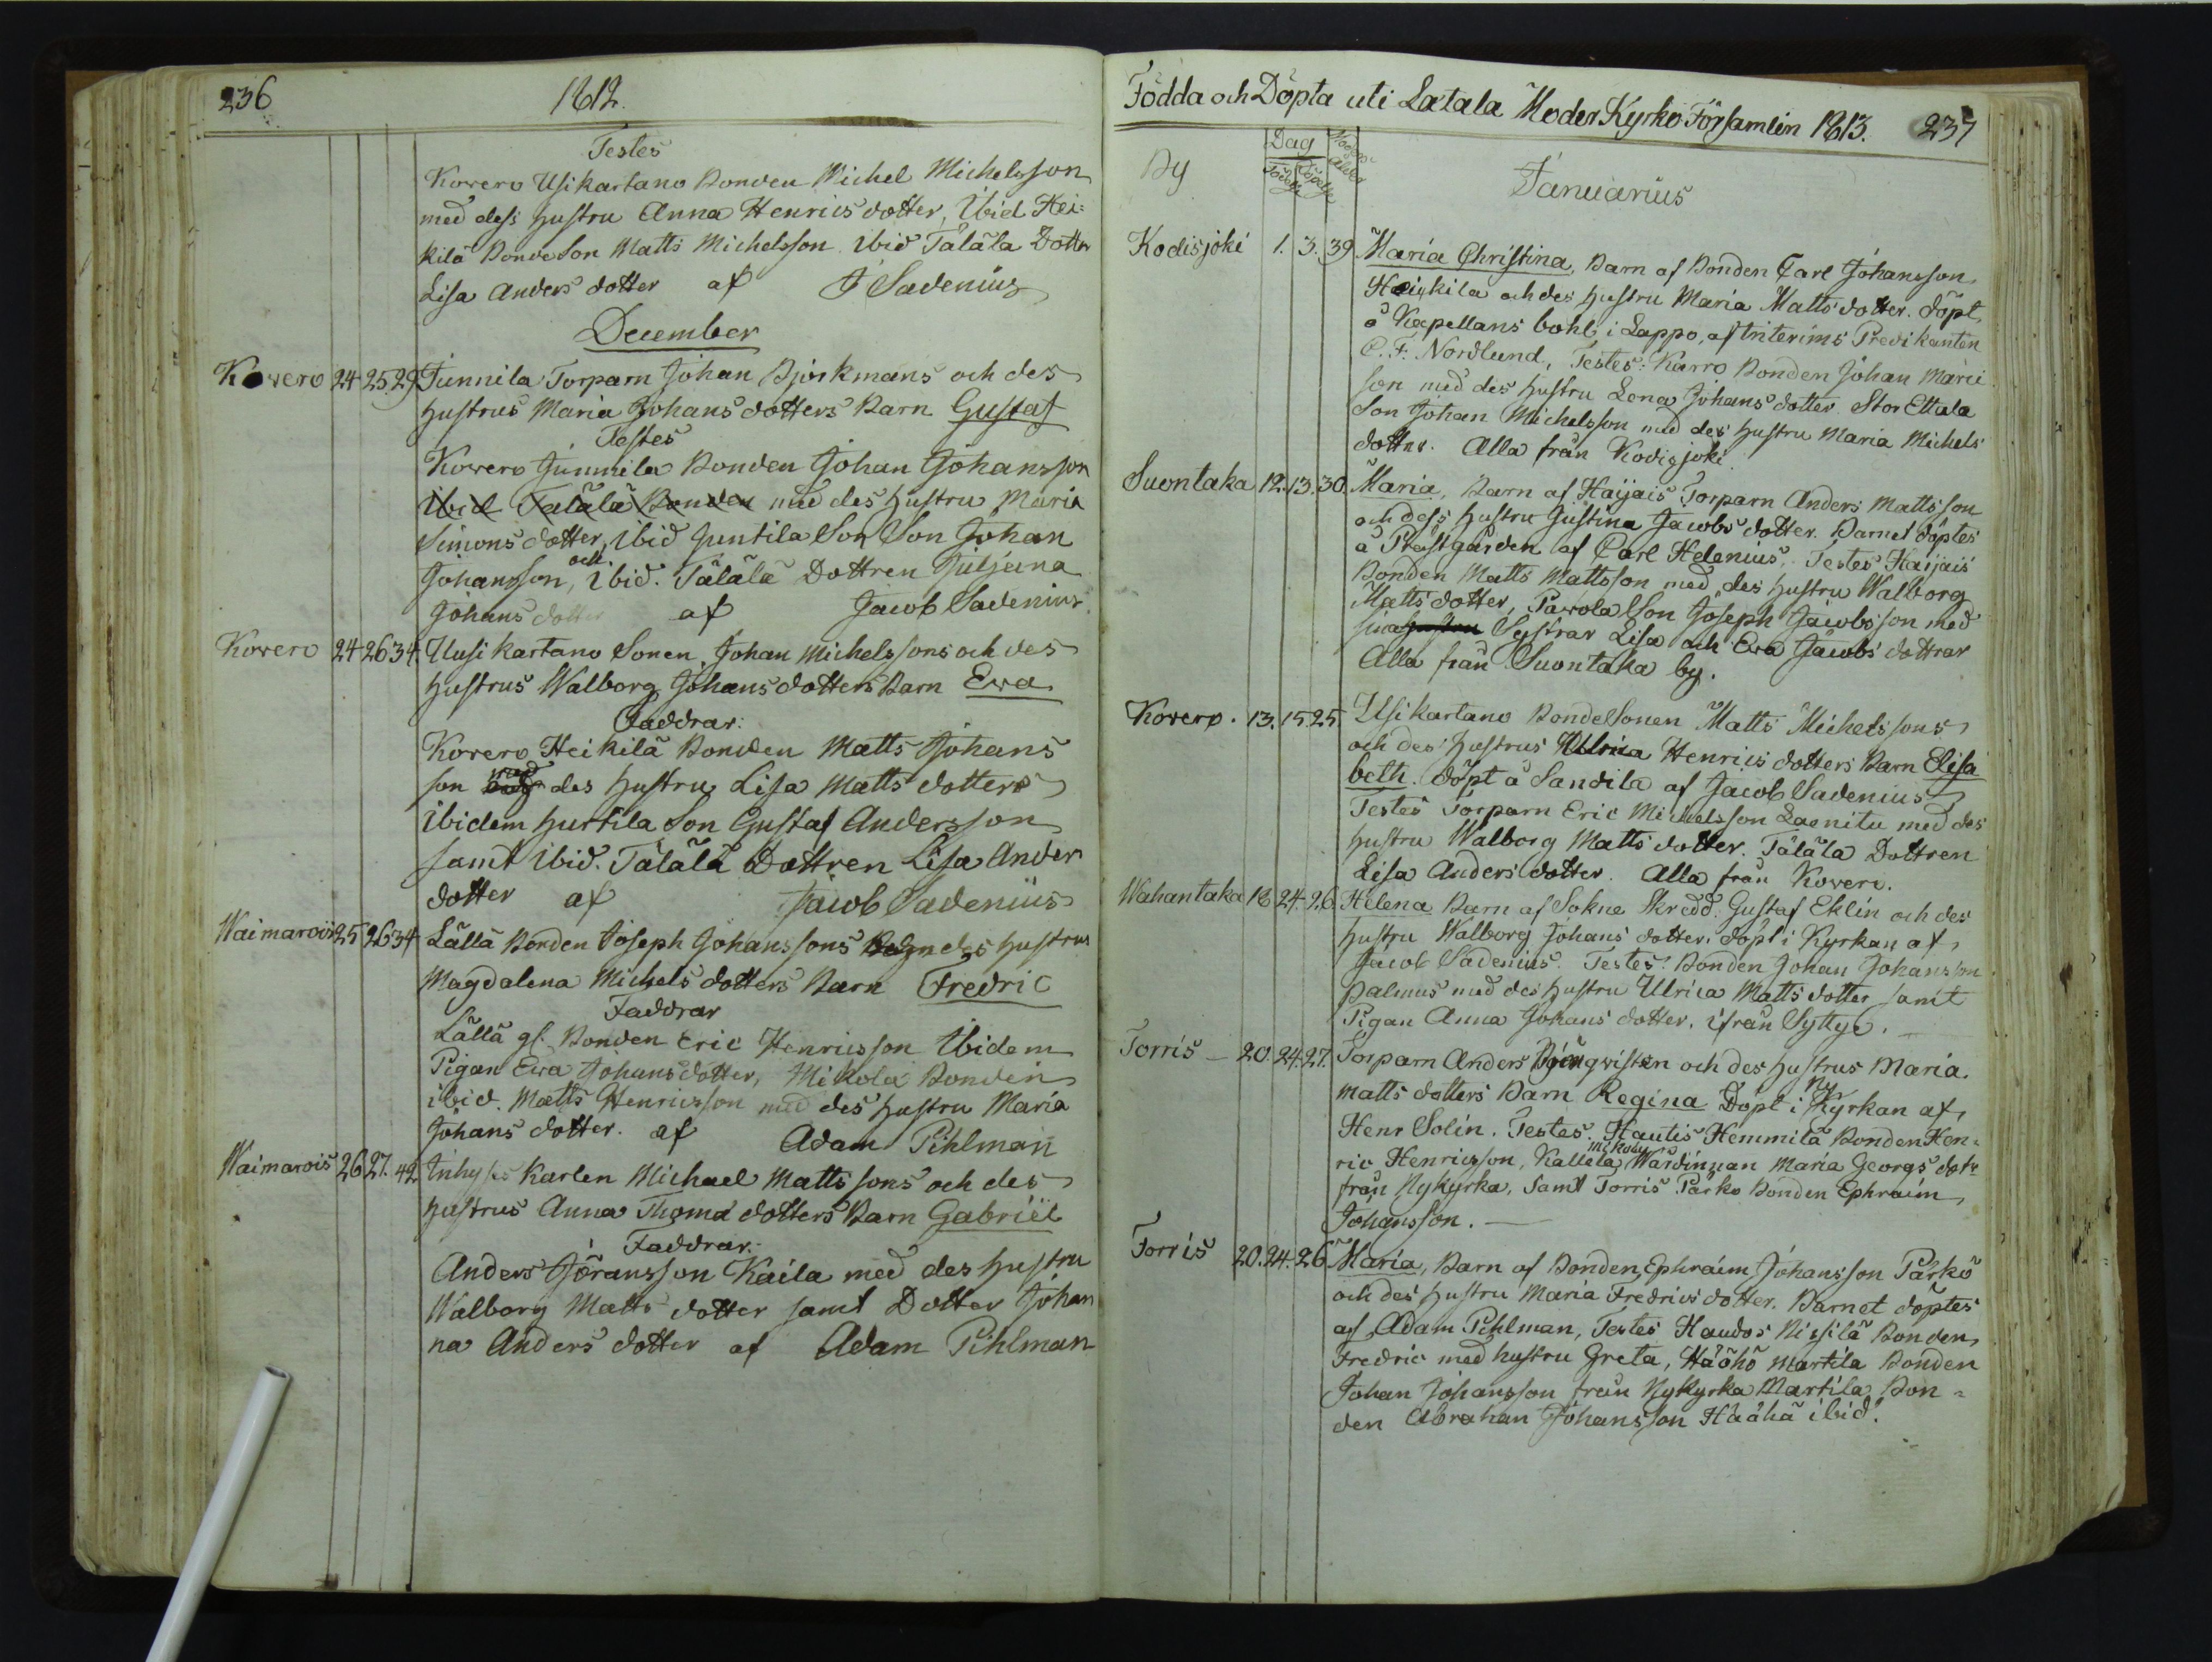 236
1812.
Testes
Kovero Usikartano Bonden Michel Michelsson
med dess hustru Anna Henrics dotter, Ibid Hei=
kilä Bonde Son Matts Michelsson ibid Tälälä Dotter
Lisa Anders dotter af J Sadenius
December
Kovero 24 25. 29. Junnila Torparn Johan Björkmans och des
hustrus Maria Johans dotters Barn Gustaf
Testes
Kovero Junnila Bonden Johan Johansson
Ibid Tälälä Bonden med des hustru Maria
Simons dotter, ibid Juntila Son Son Johan
Johansson, och ibid. Tälälä Dottren Juljana
Johans dotter af Jacob Sadenius.
Kovero 24 26 34. Uusikartano Sonen Johan Michelssons och des
hustrus Walborg Johans dotters Barn Ewa
Faddrar:
Kovero Heikilä Bonden Matts Johans
son med des hustru Lisa Matts dotter
ibidem hurtila Son Gustaf Andersson
samt ibid. Tälälä Dottren Lisa Anders
dotter af Jacob Sadenius
Waimarois 25 26 34 Lällä Bonden Joseph Johanssons des hustrus
Magdalena Michels dotters Barn Fredric
Faddrar
Lällä gl. Bonden Eric Henricsson Ibidem
Pigan Ewa Johans dotter, Mikola Bonden
ibid. Matts Henricsson med des hustru Maria
Johans dotter. af Adam Pihlman
Waimarois 26 27. 42 Inhyses Karlen Michael Matts sons och des
hustrus Anna Thoma dotters Barn Gabriel
Faddrar:
Anders Jöransson Kaila med des hustru
Walborg Matts dotter samt Dotter Johan
na Anders dotter af Adam Pihlman
Födda och Döpta uti Letala Moder Kyrko Församlin 1813. 237
By Dag
Januarius
Kodisjoki 1. 3. 39 Maria Christina, Barn af Bonden Carl Johansson
Heickila och des hustru Maria Matts dotter. döpt
å Kapellans bohl i Lappo, af Interims Predikanten
C. F. Nordlund, Testes: Karro Bonden Johan Marci
son med des hustru Lena Johans dotter. Stor Ettala
Son Johan Michelsson med des hustru Maria Michels
dotter. Alla från Kodisjoki
Suontaka 12. 13. 30. Maria, Barn af Haijais Torparn Anders Mattsson
och dess hustru Justina Jacobs dotter. Barnet döptes
å Prästgården af Carl Helenius, Testes Haijais
Bonden Matts Mattsson med des hustru Walborg
Matts dotter, Pawola Son Joseph Jacobsson med
sina hustru Systrar Lisa och Ewa Jacobs dottrar
Alla från Suontaka by.
Kovero. 13. 15 25. Usikartano BondeSonen Matts Michelssons
och des hustrus Ulrica Henrics dotters Barn Elisa
beth. döpt å Sandila af Jacob Sadenius
Testes Torparn Eric Michelsson Laenitu med des
hustru Walborg Matts dotter. Tälälä Dottren
Lisa Anders dotter. Alla från Kovero.
Wahantaka 18 24. 26 Helena Barn af Sokne Skredd. Gustaf Eklin och des
hustru Walborg Johans dotter. döpt i Kyrkan af
Jacob Sadenius. Testes: Bonden Johan Johansson
Palmus med des hustru Ulrica Matts dotter samt
Pigan Anna Johans dotter. ifrån Syttye.
Torris — 20. 24. 27. Torparn Anders och des hustrus Maria
Matts dotters Barn Regina Döpt i Ny Kyrkan af
Henr Solin. Testes. Hautis Hemmilä Bonden Hen=
ric Henricsson, Kallela Mikola Wärdinnan Maria Georgs dotr
från Nykyrka, Samt Torris Pärkö Bonden Ephraim
Johansson. —
Torris 20. 24. 26 Maria, Barn af Bonden Ephraim Johansson Pärkö
och des hustru Maria Fredrics dotter. Barnet döptes
af Adam Pihlman, Testes Haudos Nissilä Bonden
Fredric med hustru Greta, Häähö Martila Bonden
Johan Johansson från Nykyrka Martila Bon=
den Abraham Johansson Häähä ibid.